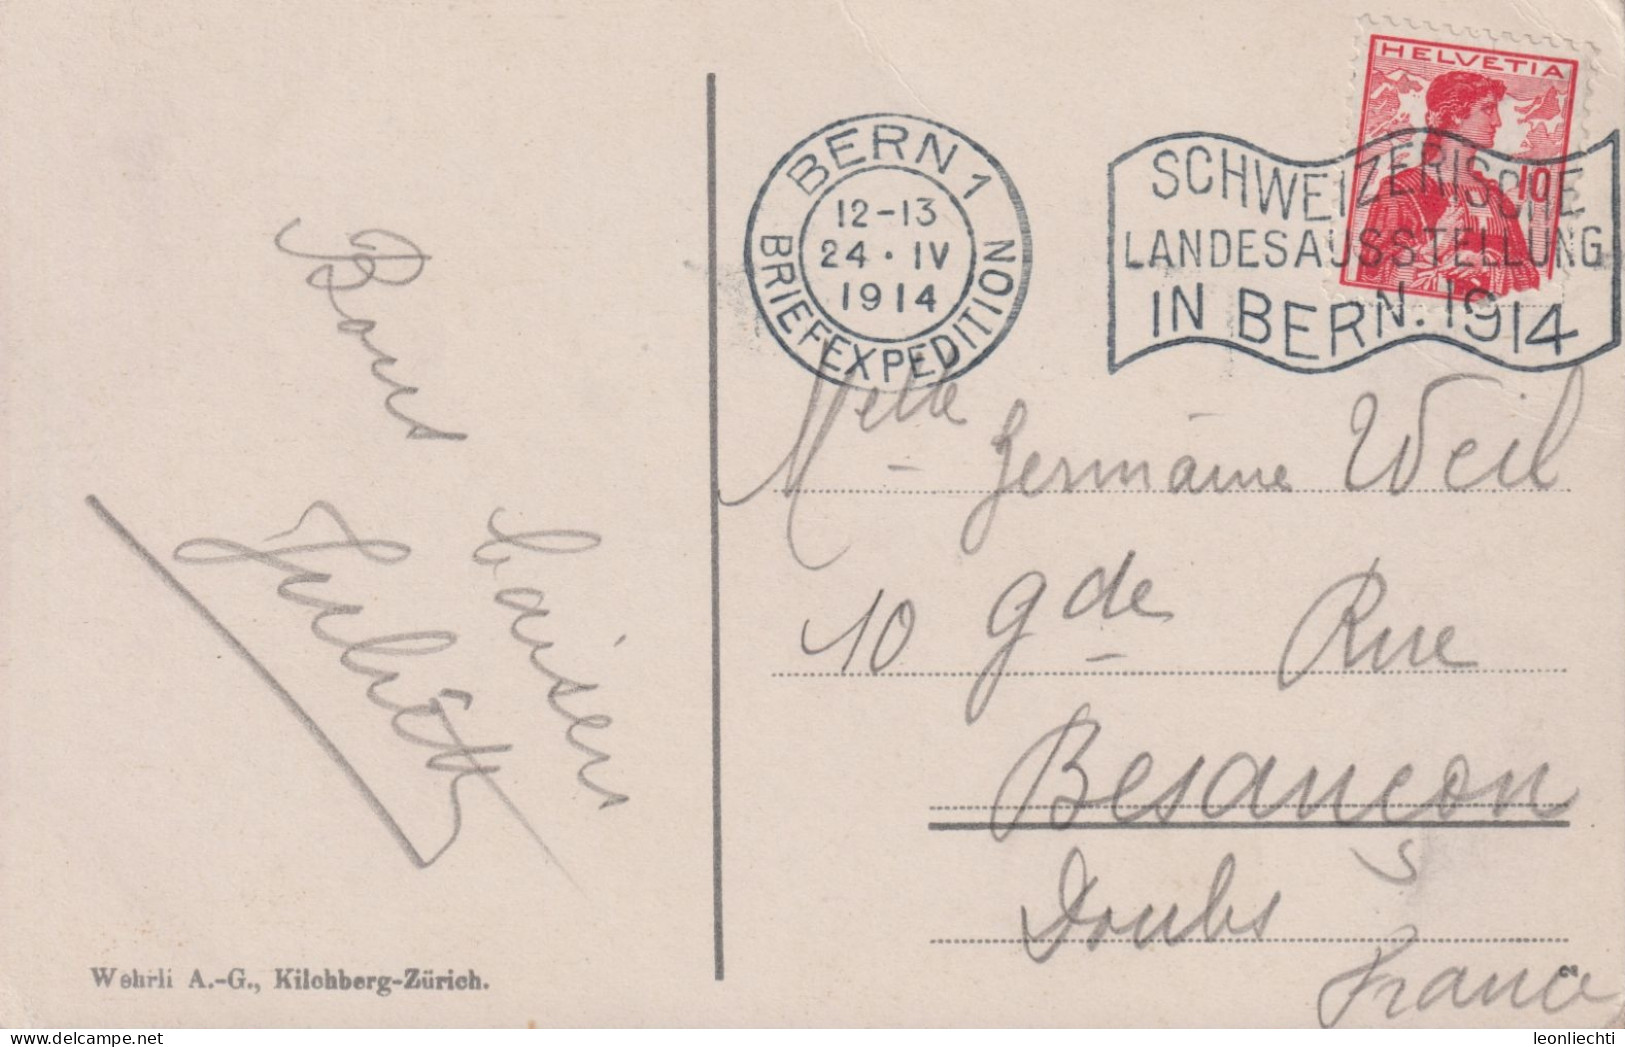 HELVETIA
10
BERN 1
12-13
24 · IV
1914
BRIEFEXPEDITION
SCHWEIZERISCHE
LANDESAUSSTELLUNG
IN BERN. 1914
Bons
baisers
Juliette
Melle Germaine Weil
10 gde Rue
Besançon
Doubs
France
Wehrli A.-G., Kilchberg-Zürich.
2
leonliechti